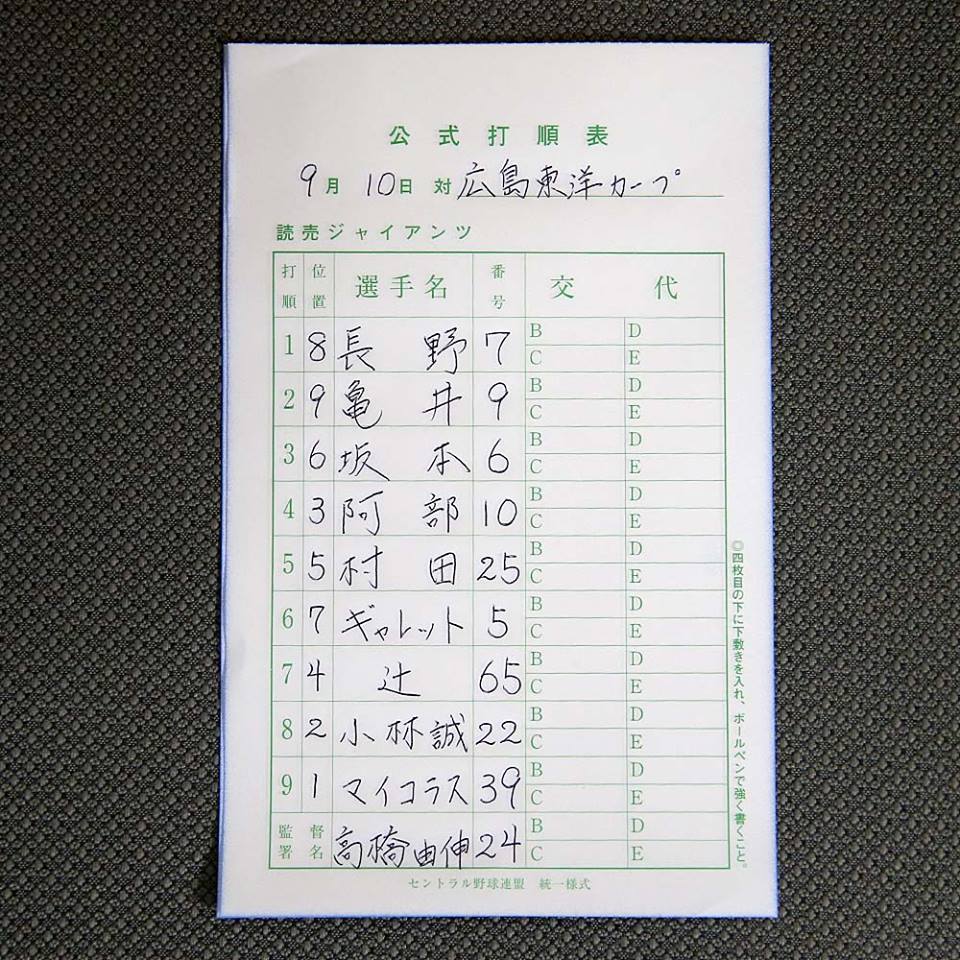 公式打順表
9月10日 対 広島東洋カープ
読売ジャイアンツ
打順 位置 選手名 番号 交代
1 8 長野 7 B D C E
2 9 亀井 9 B D C E
3 6 坂本 6 B D C E
4 3 阿部 10 B D C E
5 5 村田 25 B D C E
6 7 ギャレット 5 B D C E
7 4 辻 65 B D C E
8 2 小林誠 22 B D C E
9 1 マイコラス 39 B D C E
監督署名 高橋由伸 24 B D C E
◎四枚目の下に下敷きを入れ、ボールペンで強く書くこと。
セントラル野球連盟 統一様式